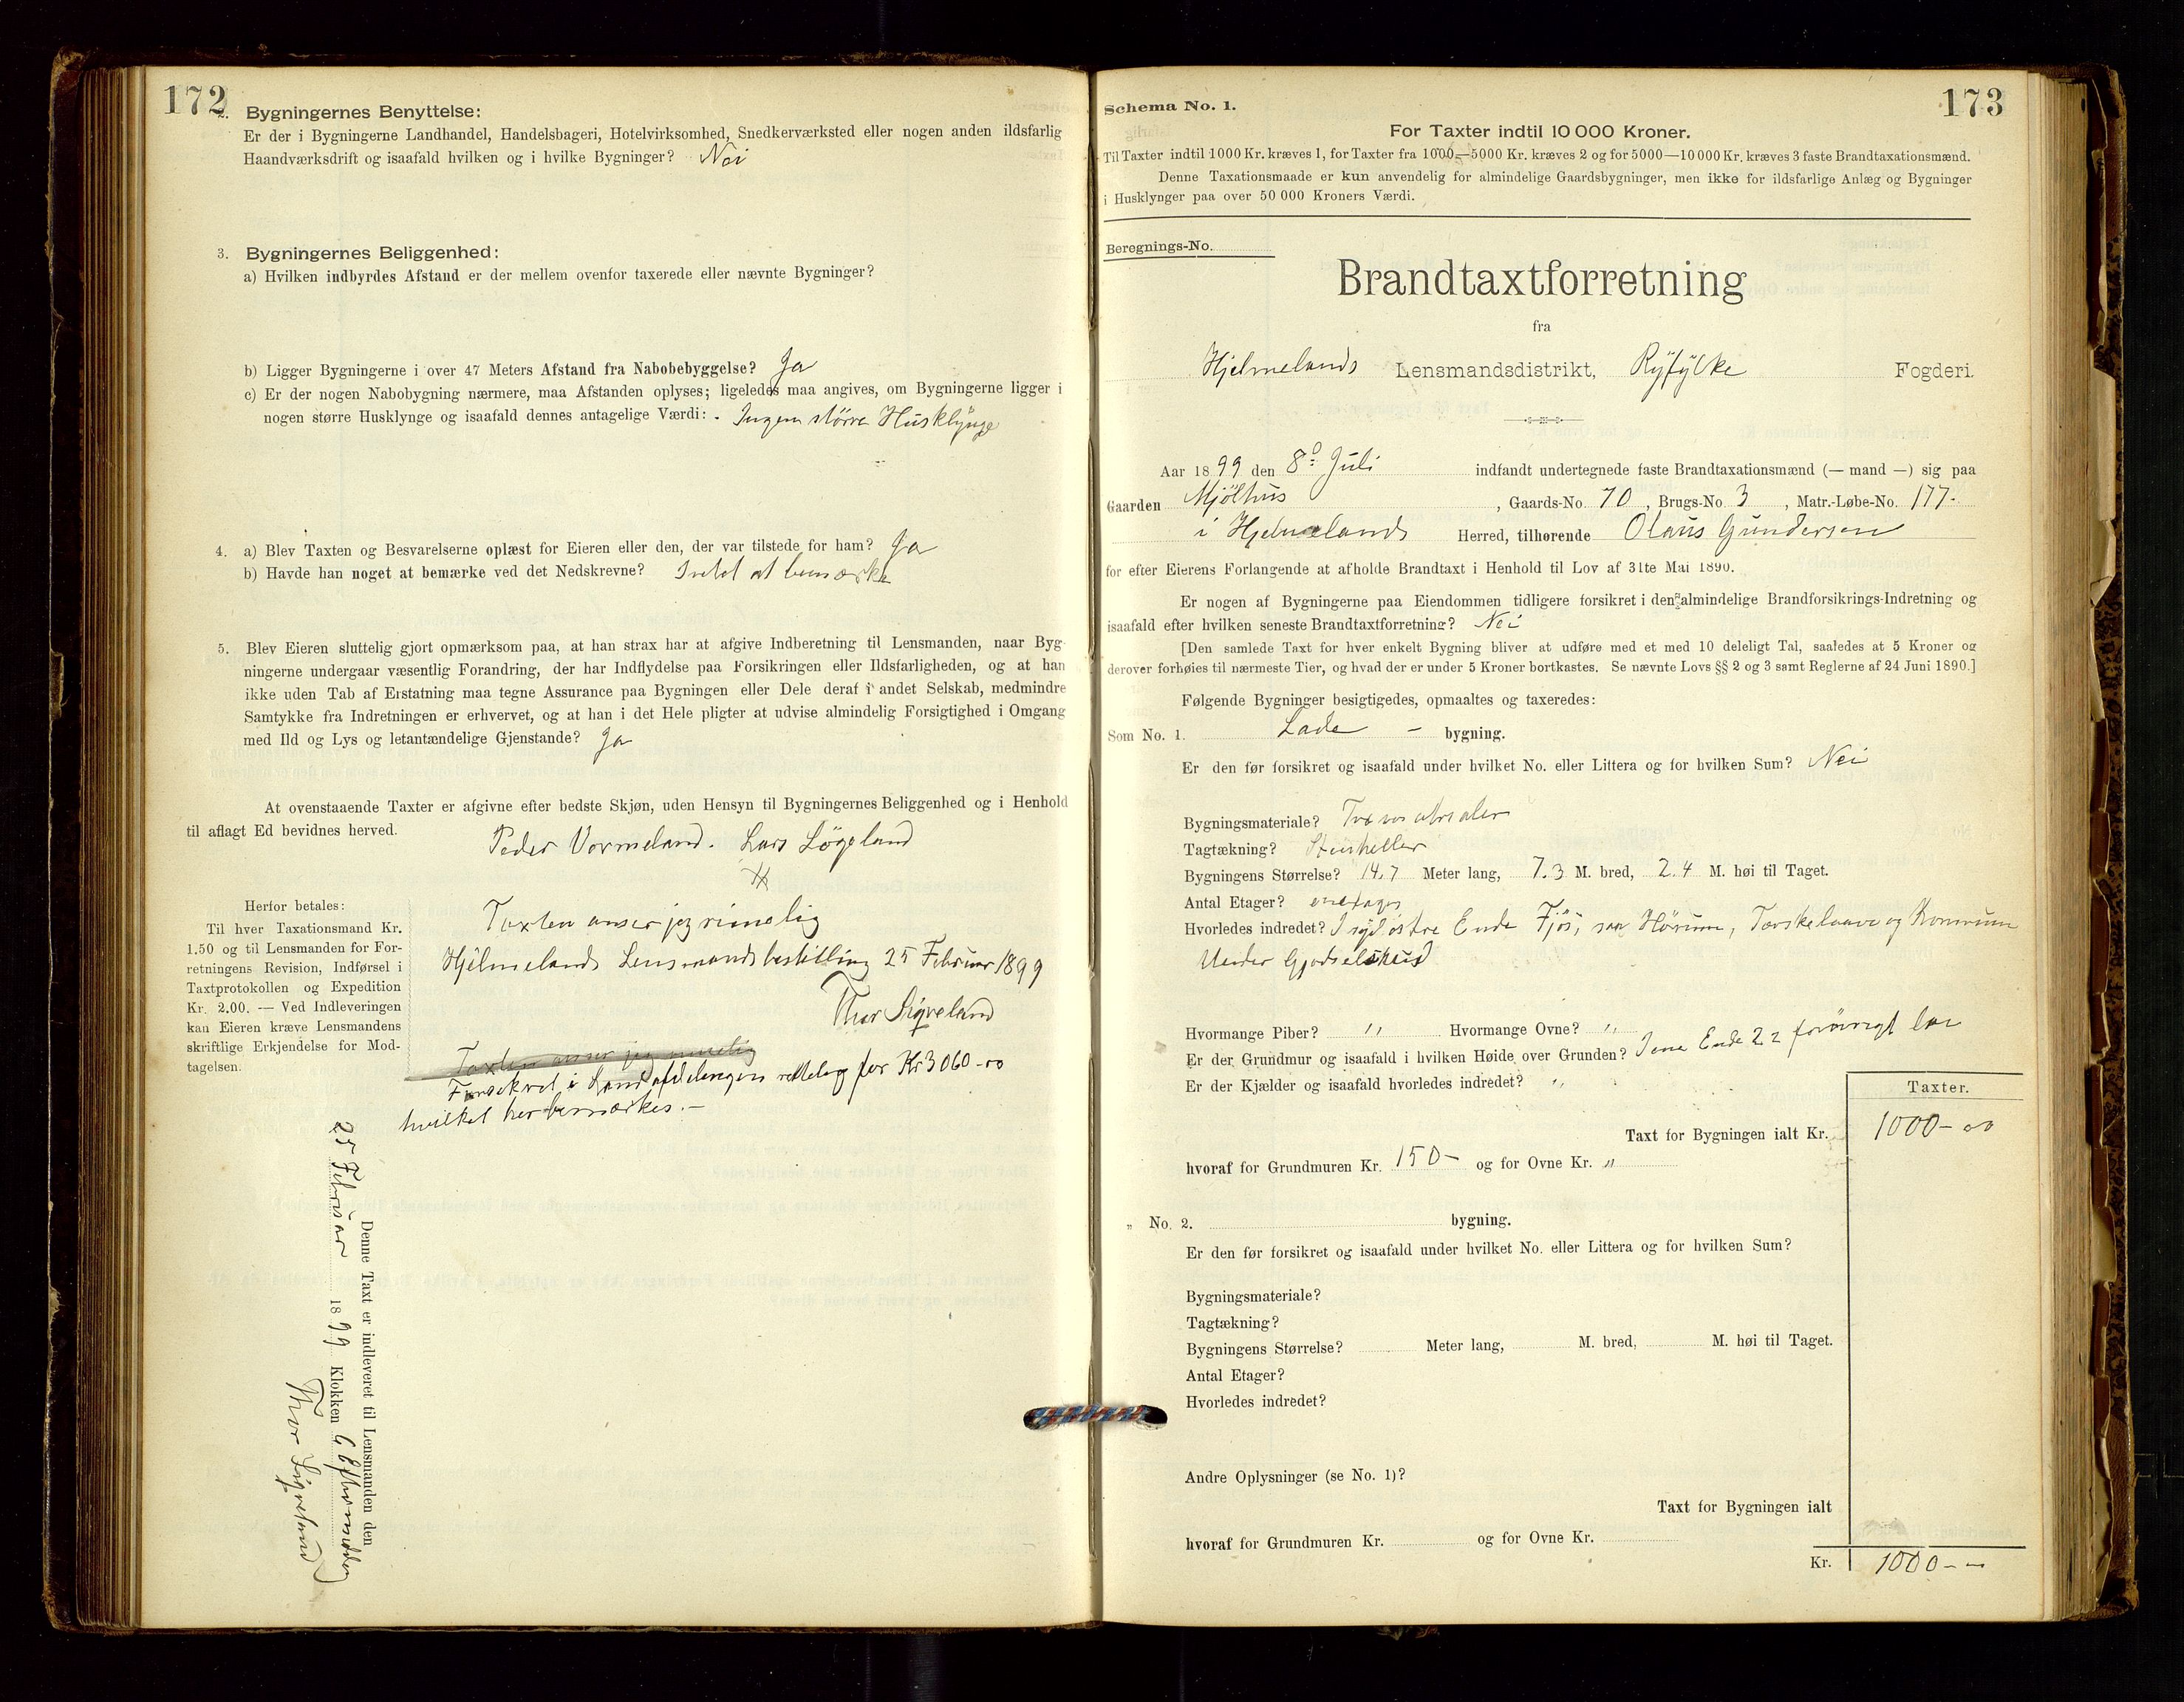 172
2. Bygningernes Benyttelse:
Er der i Bygningerne Landhandel, Handelsbageri, Hotelvirksomhed, Snedkerværksted eller nogen anden ildsfarlig
Haandværksdrift og isaafald hvilken og i hvilke Bygninger? Nei
3. Bygningernes Beliggenhed:
a) Hvilken indbyrdes Afstand er der mellem ovenfor taxerede eller nævnte Bygninger?
b) Ligger Bygningerne i over 47 Meters Afstand fra Nabobebyggelse? Ja
c) Er der nogen Nabobygning nærmere, maa Afstanden oplyses; ligeledes maa angives, om Bygningerne ligger i
nogen større Husklynge og isaafald dennes antagelige Værdi: . Ingen større Husklynge
4. a) Blev Taxten og Besvarelserne oplæst for Eieren eller den, der var tilstede for ham? Ja
b) Havde han noget at bemærke ved det Nedskrevne? Intet at bemærke
5. Blev Eieren sluttelig gjort opmærksom paa, at han strax har at afgive Indberetning til Lensmanden, naar Byg-
ningerne undergaar væsentlig Forandring, der har Indflydelse paa Forsikringen eller Ildsfarligheden, og at han
ikke uden Tab af Erstatning maa tegne Assurance paa Bygningen eller Dele deraf i andet Selskab, medmindre
Samtykke fra Indretningen er erhvervet, og at han i det Hele pligter at udvise almindelig Forsigtighed i Omgang
med Ild og Lys og letantændelige Gjenstande? Ja
At ovenstaaende Taxter er afgivne efter bedste Skjøn, uden Hensyn til Bygningernes Beliggenhed og i Henhold
til aflagt Ed bevidnes herved.
Peder Vormeland. Lars Løgeland
Herfor betales:
Til hver Taxationsmand Kr.
1.50 og til Lensmanden for For-
retningens Revision, Indførsel i
Taxtprotokollen og Expedition
Kr. 2.00. — Ved Indleveringen
kan Eieren kræve Lensmandens
skriftlige Erkjendelse for Mod-
tagelsen.
Taxten anser jeg rimelig
Hjelmelands Lensmandsbestilling 25 Februar 1899
Thor Sigveland
Taxten anser jeg rimelig
Forsikret i Landafdelingen for Kr 3060-00
hvilket her bemærkes.-
Denne Taxt er indleveret til Lensmanden den
25 Februar 1899 Klokken 6 Eftermiddag
Thor Sigveland
173
Schema No. 1.
For Taxter indtil 10 000 Kroner.
Til Taxter indtil 1000 Kr. kræves 1, for Taxter fra 1000—5000 Kr. kræves 2 og for 5000—10 000 Kr. kræves 3 faste Brandtaxationsmænd.
Denne Taxationsmaade er kun anvendelig for almindelige Gaardsbygninger, men ikke for ildsfarlige Anlæg og Bygninger
i Husklynger paa over 50 000 Kroners Værdi.
Beregnings-No.
Brandtaxtforretning
fra
Hjelmelands Lensmandsdistrikt, Ryfylke Fogderi.
Aar 1899 den 8de Juli indfandt undertegnede faste Brandtaxationsmænd (— mand —) sig paa
Gaarden Mjölhus, Gaards-No. 70, Brugs-No. 3, Matr.-Løbe-No. 177.
i Hjelmelands Herred, tilhørende Olaus Gundersen
for efter Eierens Forlangende at afholde Brandtaxt i Henhold til Lov af 31te Mai 1890.
Er nogen af Bygningerne paa Eiendommen tidligere forsikret i den almindelige Brandforsikrings-Indretning og
isaafald efter hvilken seneste Brandtaxtforretning? Nei
[Den samlede Taxt for hver enkelt Bygning bliver at udføre med et med 10 deleligt Tal, saaledes at 5 Kroner og
derover forhøies til nærmeste Tier, og hvad der er under 5 Kroner bortkastes. Se nævnte Lovs §§ 2 og 3 samt Reglerne af 24 Juni 1890.]
Følgende Bygninger besigtigedes, opmaaltes og taxeredes:
Som No. 1. Lade - bygning.
Er den før forsikret og isaafald under hvilket No. eller Littera og for hvilken Sum? Nei
Bygningsmateriale? Træmaterialer
Tagtækning? Stenheller
Bygningens Størrelse? 14.7 Meter lang, 7.3 M. bred, 2.4 M. høi til Taget.
Antal Etager? enetages
Hvorledes indredet? I sydøstre Ende Fjøs, saa Hørum, Tærskelaave og Kornrum
Under Gjødselshus
Hvormange Piber? " Hvormange Ovne? "
Er der Grundmur og isaafald i hvilken Høide over Grunden? I ene Ende 2.2 forøvrigt lav
Er der Kjælder og isaafald hvorledes indredet? "
Taxter.
Taxt for Bygningen ialt Kr. 1000-00
hvoraf for Grundmuren Kr. 150- og for Ovne Kr. "
" No. 2. bygning.
Er den før forsikret og isaafald under hvilket No. eller Littera og for hvilken Sum?
Bygningsmateriale?
Tagtækning?
Bygningens Størrelse? Meter lang, M. bred, M. høi til Taget.
Antal Etager?
Hvorledes indredet?
Andre Oplysninger (se No. 1)?
Taxt for Bygningen ialt
hvoraf for Grundmuren Kr. og for Ovne Kr.
Kr. 1000-